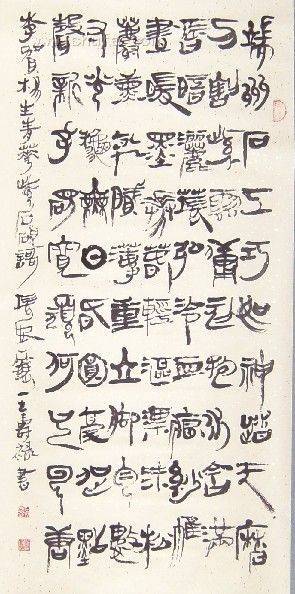 端州石工巧如神踏天磨
刀割紫雲傭刓抱水含滿
脣暗灑萇弘冷血痕紗帷
晝暖墨花春輕漚漂沫松
麝薰乾膩薄重立腳勻數
寸光秋無日昏圓毫促點
聲靜新孔硯寬頑何足云
李賀楊生青花紫石硯歌 庚辰歲 王壽書